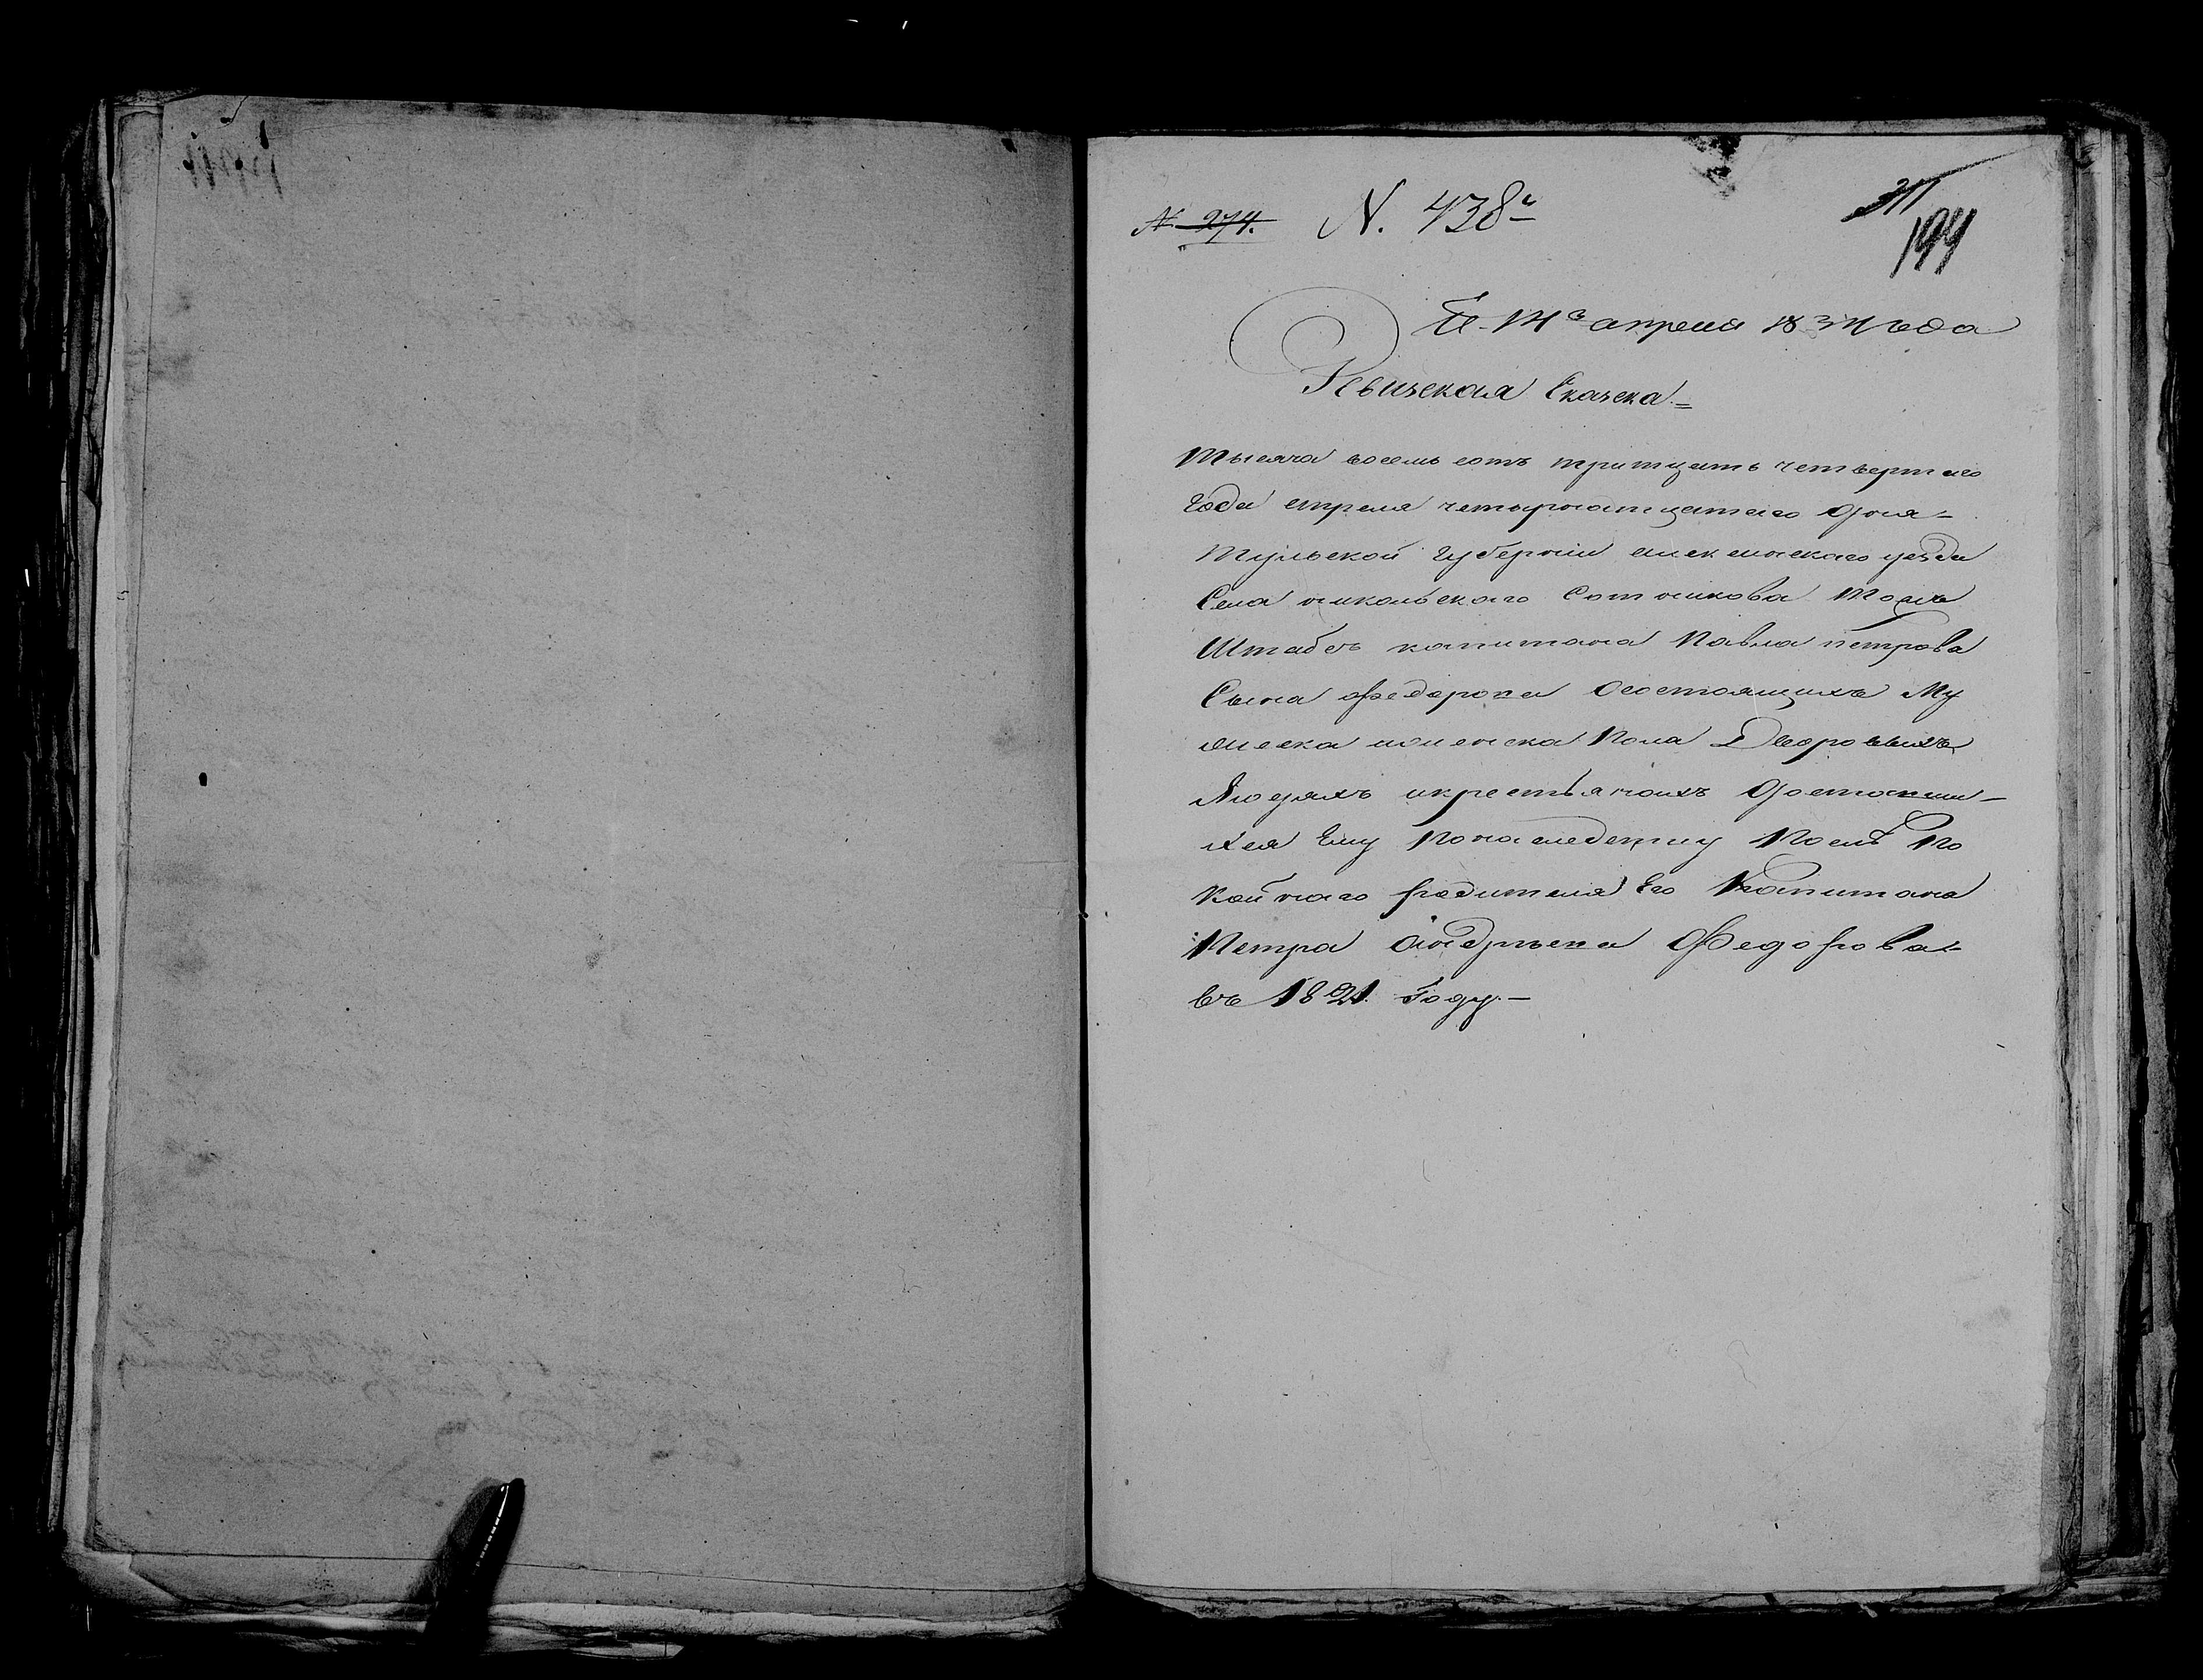 N. 274. N. 438
311
194
апреля 1834 года
Ревизская Сказска
Тысяча восемь сотъ тритцать четвертаго
Года апреля четырнатцатаго дня
Тульской губернии алексинскаго уезда
Села никольскаго Сотникова тожъ
Штабсъ капитана Павла петрова
Сына Федорова Осостоящихъ Му
жеска иженска Пола Дворовыхъ
Людяхъ икрестьянохъ Достовши
хся Ему Понаследству Посль По
Койнаго Родителя Его Капитана
Петра Андрѣева Федорова
въ 1821 Году.